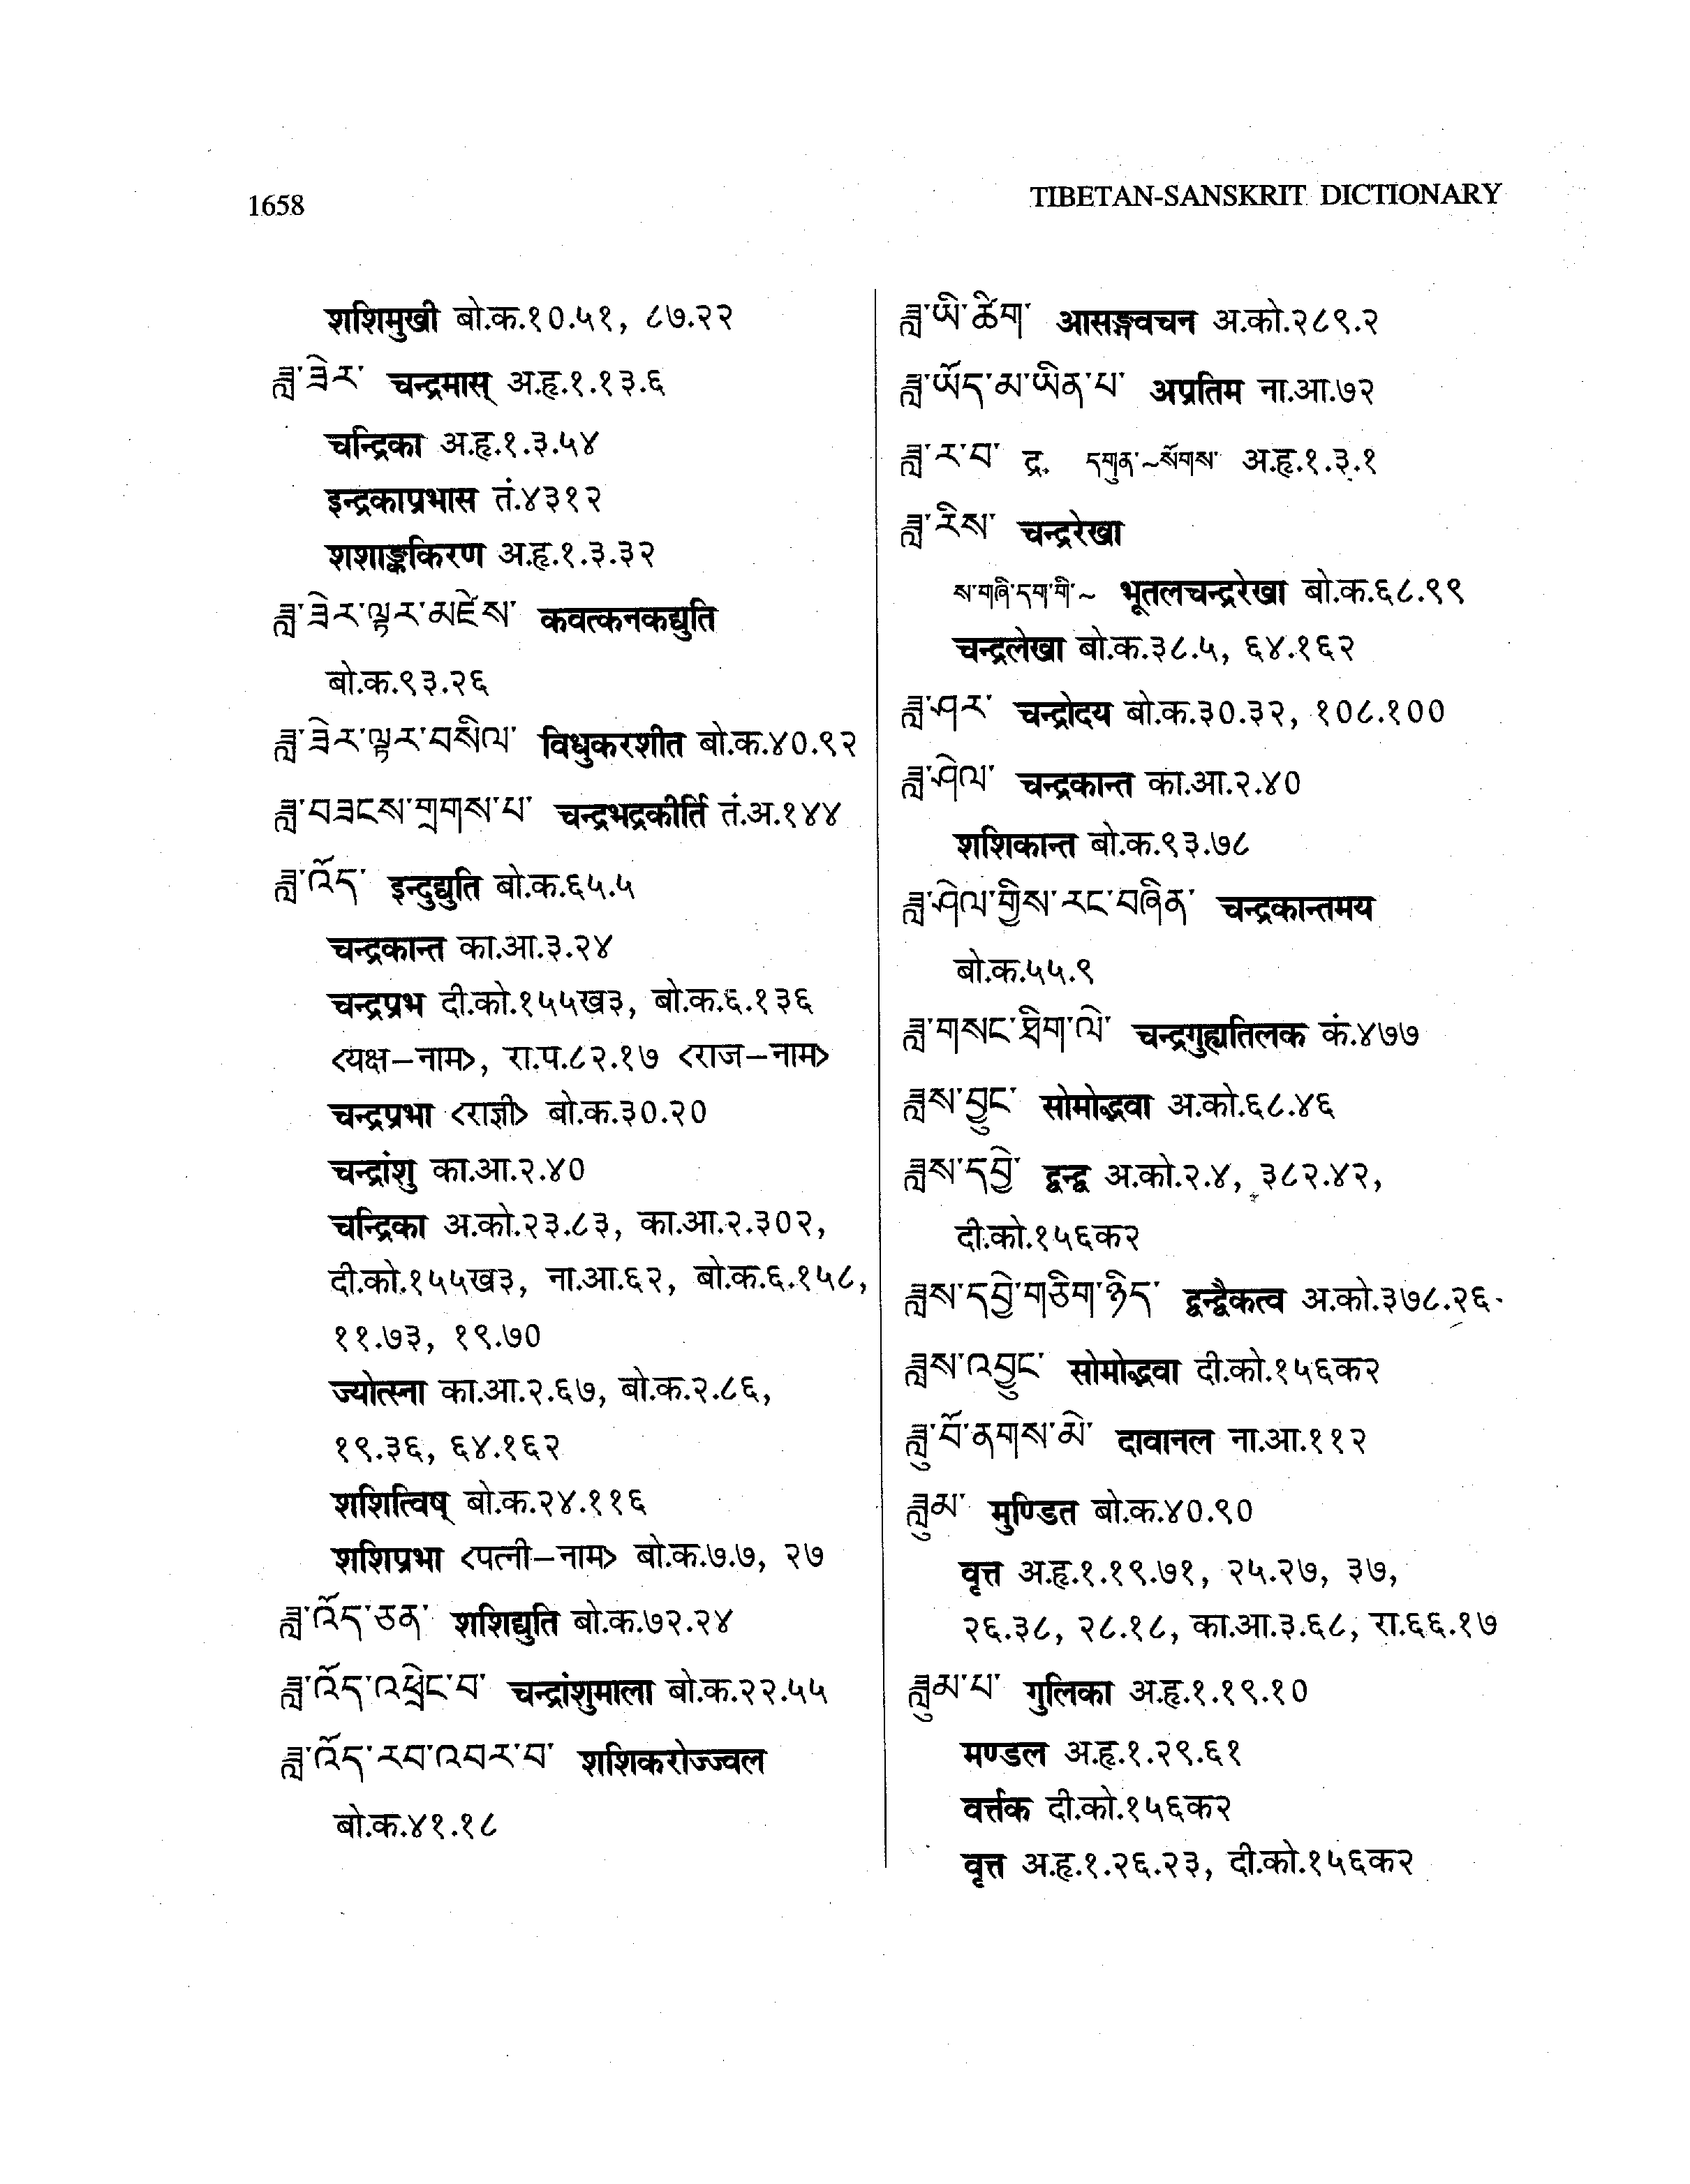 1658
TIBETAN-SANSKRIT DICTIONARY
शशिमुखी बो.क.१०.५१, ८७.२२
ཟླ་ཟེར་ चन्द्रमास् अ.हृ.१.१३.६
चन्द्रिका अ.हृ.१.३.५४
इन्द्रकाप्रभास तं.४३१२
शशाङ्ककिरण अ.हृ.१.३.३२
ཟླ་ཟེར་ལྟར་མཛེས་ कवत्कनकद्युति
बो.क.९३.२६
ཟླ་ཟེར་ལྟར་བསིལ་ विधुकरशीत बो.क.४०.९२
ཟླ་བཟངས་གྲགས་པ་ चन्द्रभद्रकीर्ति तं.अ.१४४
ཟླ་འོད་ इन्दुद्युति बो.क.६५.५
चन्द्रकान्त का.आ.३.२४
चन्द्रप्रभ दी.को.१५५ख३, बो.क.६.१३६
<यक्ष–नाम>, रा.प.८२.१७ <राज–नाम>
चन्द्रप्रभा <राज्ञी> बो.क.३०.२०
चन्द्रांशु का.आ.२.४०
चन्द्रिका अ.को.२३.८३, का.आ.२.३०२,
दी.को.१५५ख३, ना.आ.६२, बो.क.६.१५८,
११.७३, १९.७०
ज्योत्स्ना का.आ.२.६७, बो.क.२.८६,
१९.३६, ६४.१६२
शशित्विष् बो.क.२४.११६
शशिप्रभा <पत्नी–नाम> बो.क.७.७, २७
ཟླ་འོད་ཅན་ शशिद्युति बो.क.७२.२४
ཟླ་འོད་འཕྲེང་བ་ चन्द्रांशुमाला बो.क.२२.५५
ཟླ་འོད་རབ་འབར་བ་ शशिकरोज्ज्वल
बो.क.४१.१८
ཟླ་ཡི་ཚིག་ आसङ्गवचन अ.को.२८९.२
ཟླ་ཡོད་མ་ཡིན་པ་ अप्रतिम ना.आ.७२
ཟླ་ར་བ་ द्र. དགུན་~སོགས་ अ.हृ.१.३.१
ཟླ་རིས་ चन्द्ररेखा
ས་གཞི་དག་གི་~ भूतलचन्द्ररेखा बो.क.६८.९९
चन्द्रलेखा बो.क.३८.५, ६४.१६२
ཟླ་ཤར་ चन्द्रोदय बो.क.३०.३२, १०८.१००
ཟླ་ཤེལ་ चन्द्रकान्त का.आ.२.४०
शशिकान्त बो.क.९३.७८
ཟླ་ཤེལ་གྱིས་རང་བཞིན་ चन्द्रकान्तमय
बो.क.५५.९
ཟླ་གསང་ཐིག་ལེ་ चन्द्रगुह्यतिलक कं.४७७
ཟླས་བྱུང་ सोमोद्भवा अ.को.६८.४६
ཟླས་དབྱེ་ द्वन्द्व अ.को.२.४, ३८२.४२,
दी.को.१५६क२
ཟླས་དབྱེ་གཅིག་ཉིད་ द्वन्द्वैकत्व अ.को.३७८.२६
ཟླས་འབྱུང་ सोमोद्भवा दी.को.१५६क२
ཟླུ་བོ་ནགས་མེ་ दावानल ना.आ.११२
ཟླུམ་ मुण्डित बो.क.४०.९०
वृत्त अ.हृ.१.१९.७१, २५.२७, ३७,
२६.३८, २८.१८, का.आ.३.६८, रा.६६.१७
ཟླུམ་པ་ गुलिका अ.हृ.१.१९.१०
मण्डल अ.हृ.१.२९.६१
वर्त्तक दी.को.१५६क२
वृत्त अ.हृ.१.२६.२३, दी.को.१५६क२